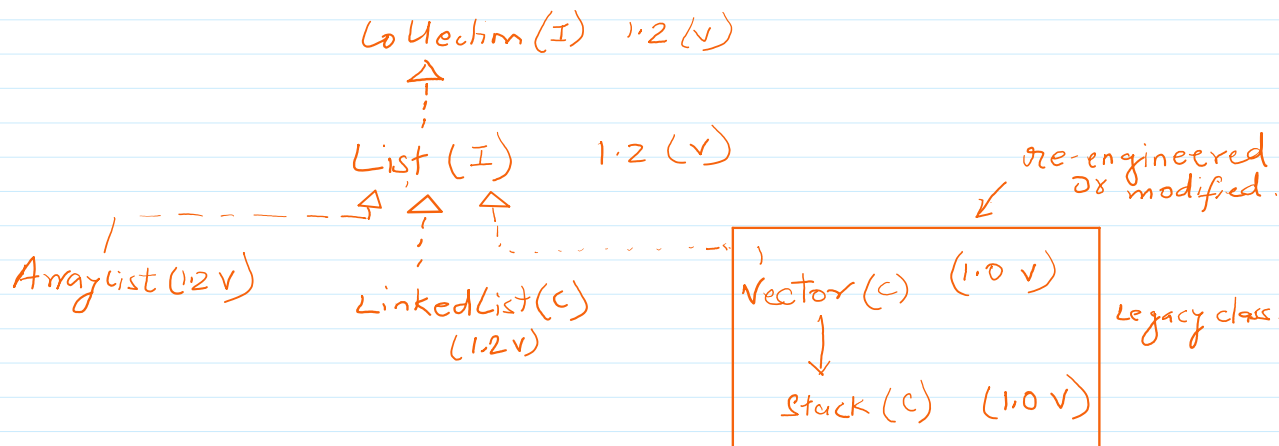 Collection (I) 1.2 (V)
List (I) 1.2 (V)
re-engineered
or modified.
ArrayList (1.2 V)
LinkedList (C)
(1.2 V)
Vector (C) (1.0 V)
Legacy class
Stack (C) (1.0 V)